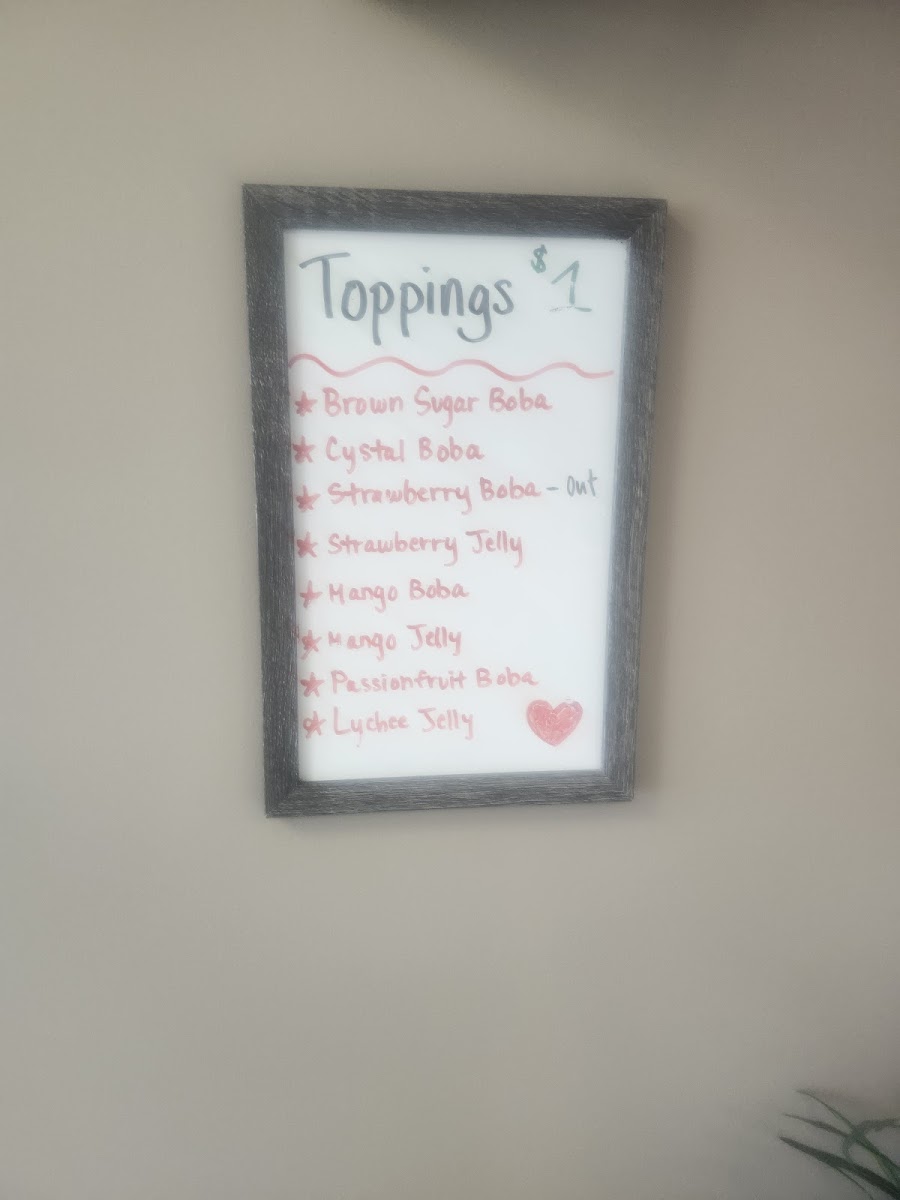 Toppings $1
Brown Sugar Boba
Cystal Boba
Strawberry Boba - Out
Strawberry Jelly
Mango Boba
Mango Jelly
Passionfruit Boba
Lychee Jelly